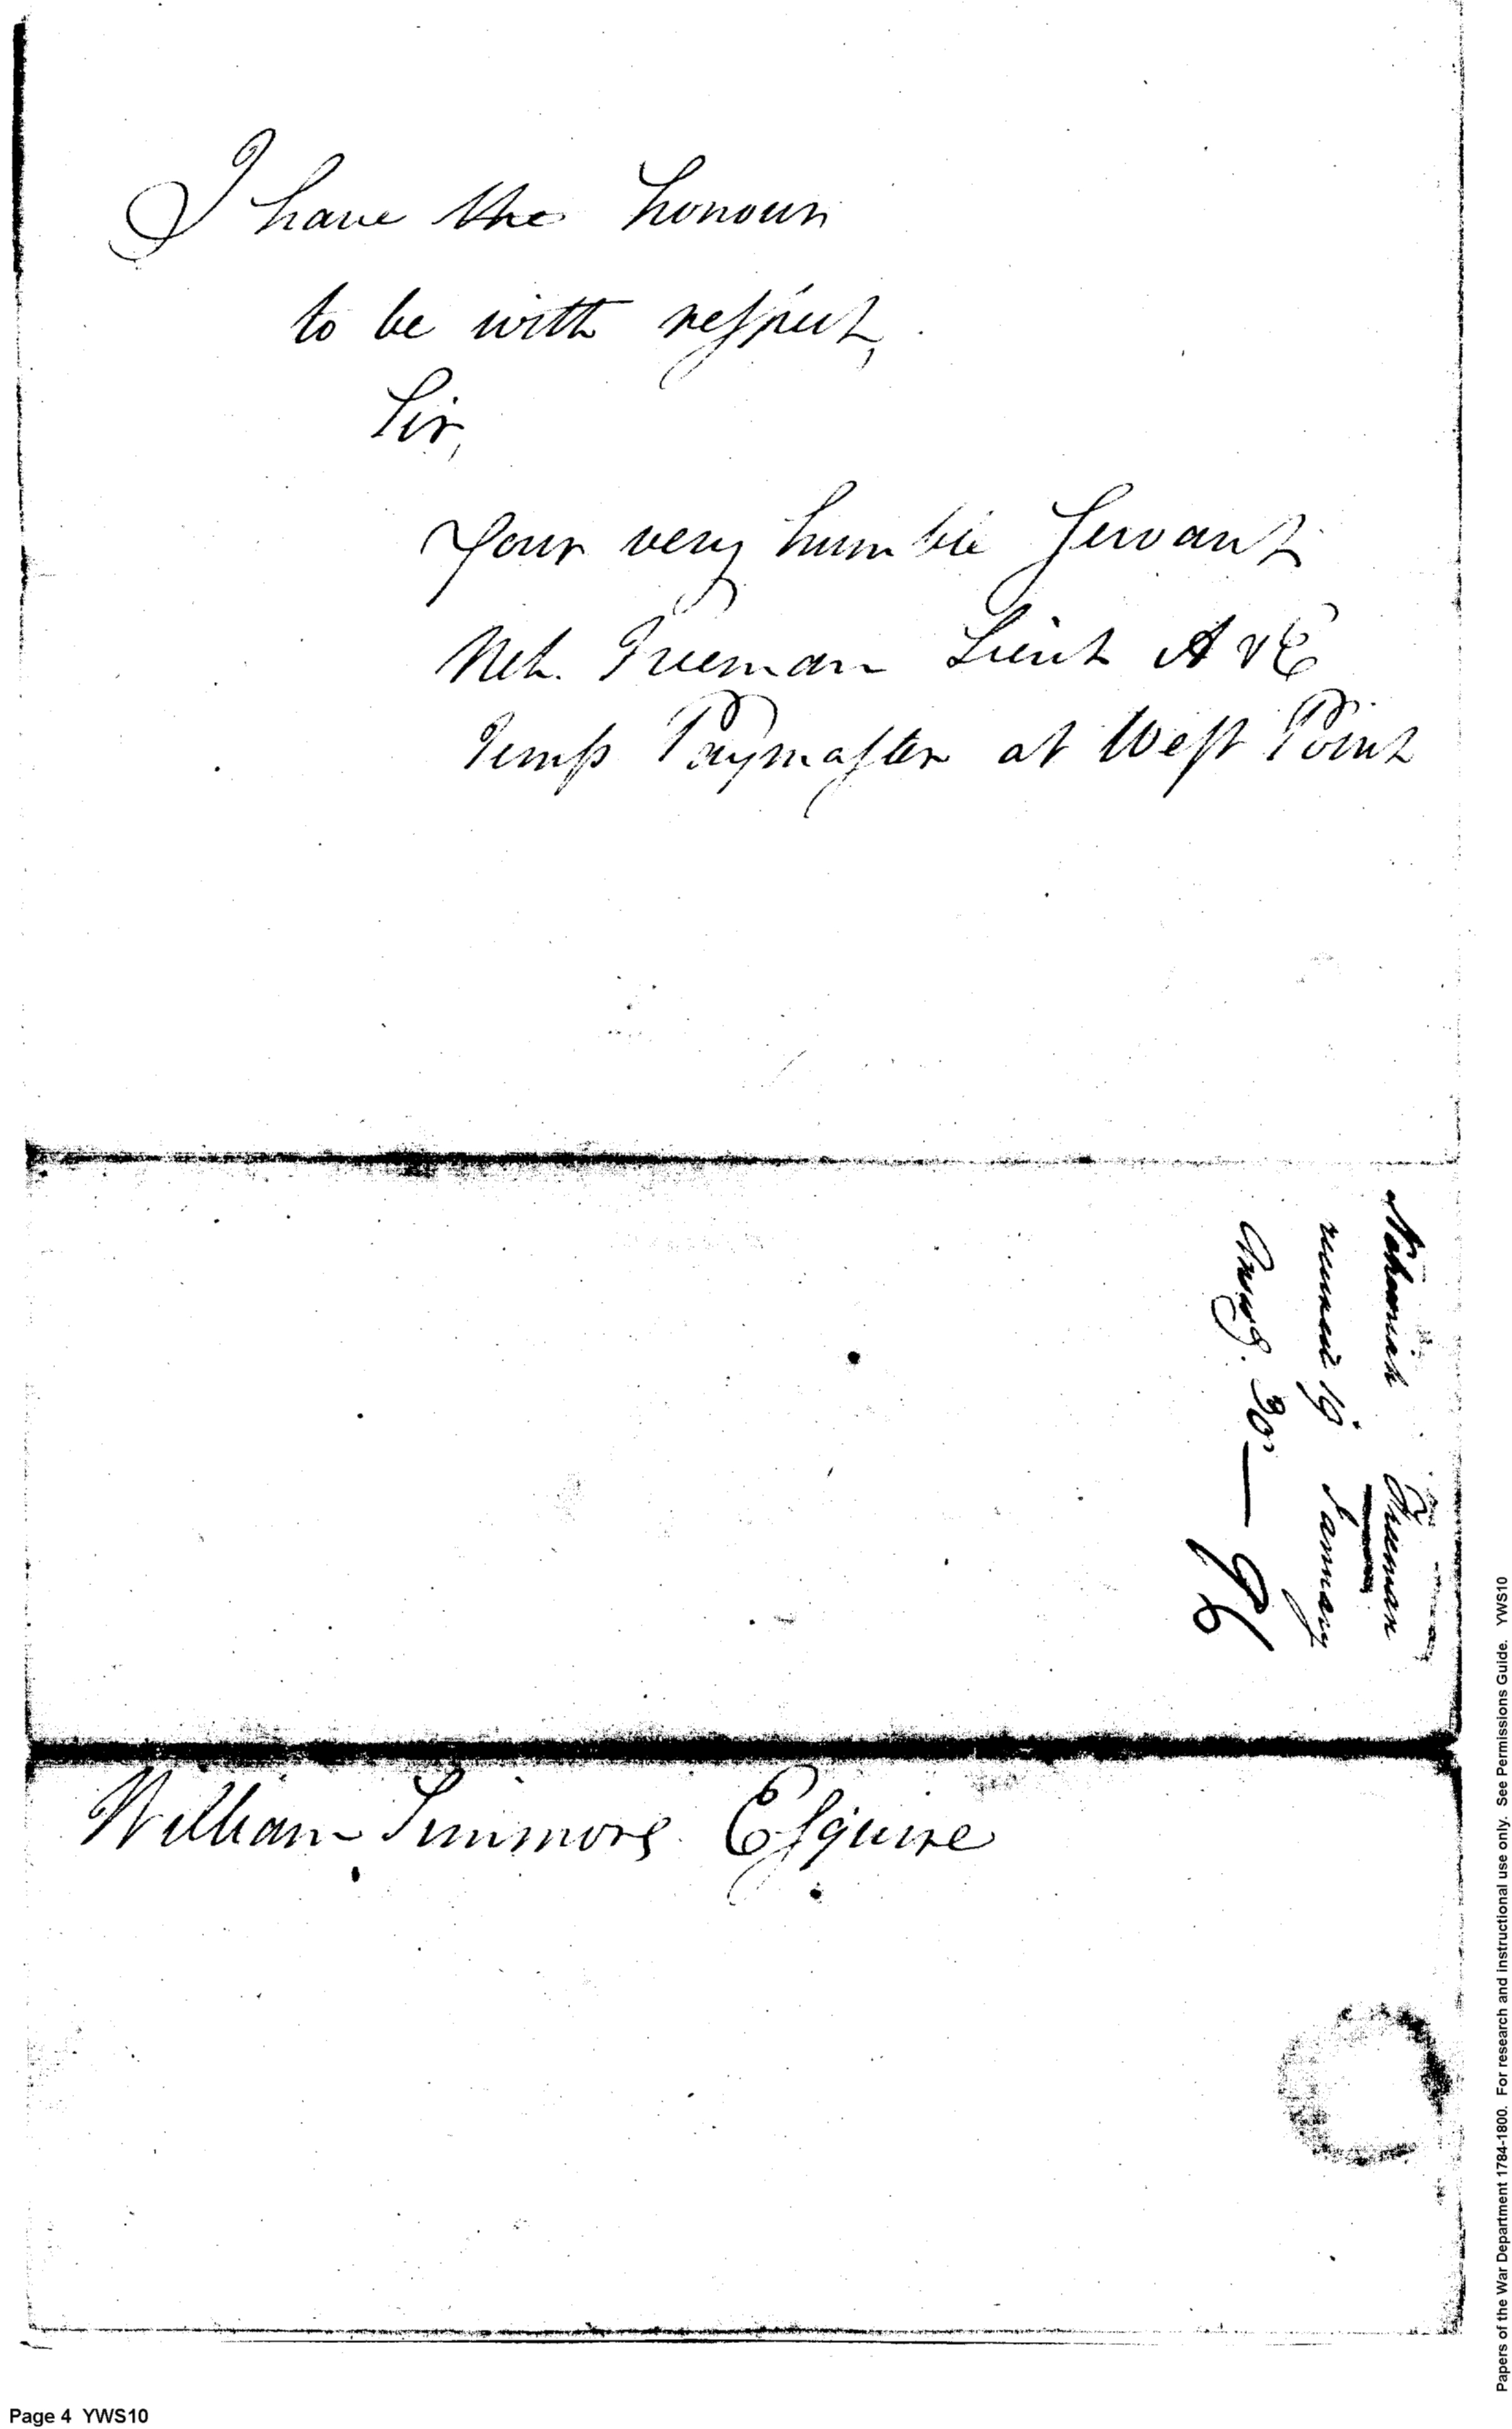 I have the honour
to be with respect,
Sir,
Your very humble Servant
Neh. Freeman Lieut A & E
Temp Paymaster at West Point
Nehemiah Freeman
received 19 January
Answd. 30 —
William Simmons Esquire
Papers of the War Department 1784-1800. For research and instructional use only. See Permissions Guide. YWS10
Page 4 YWS10